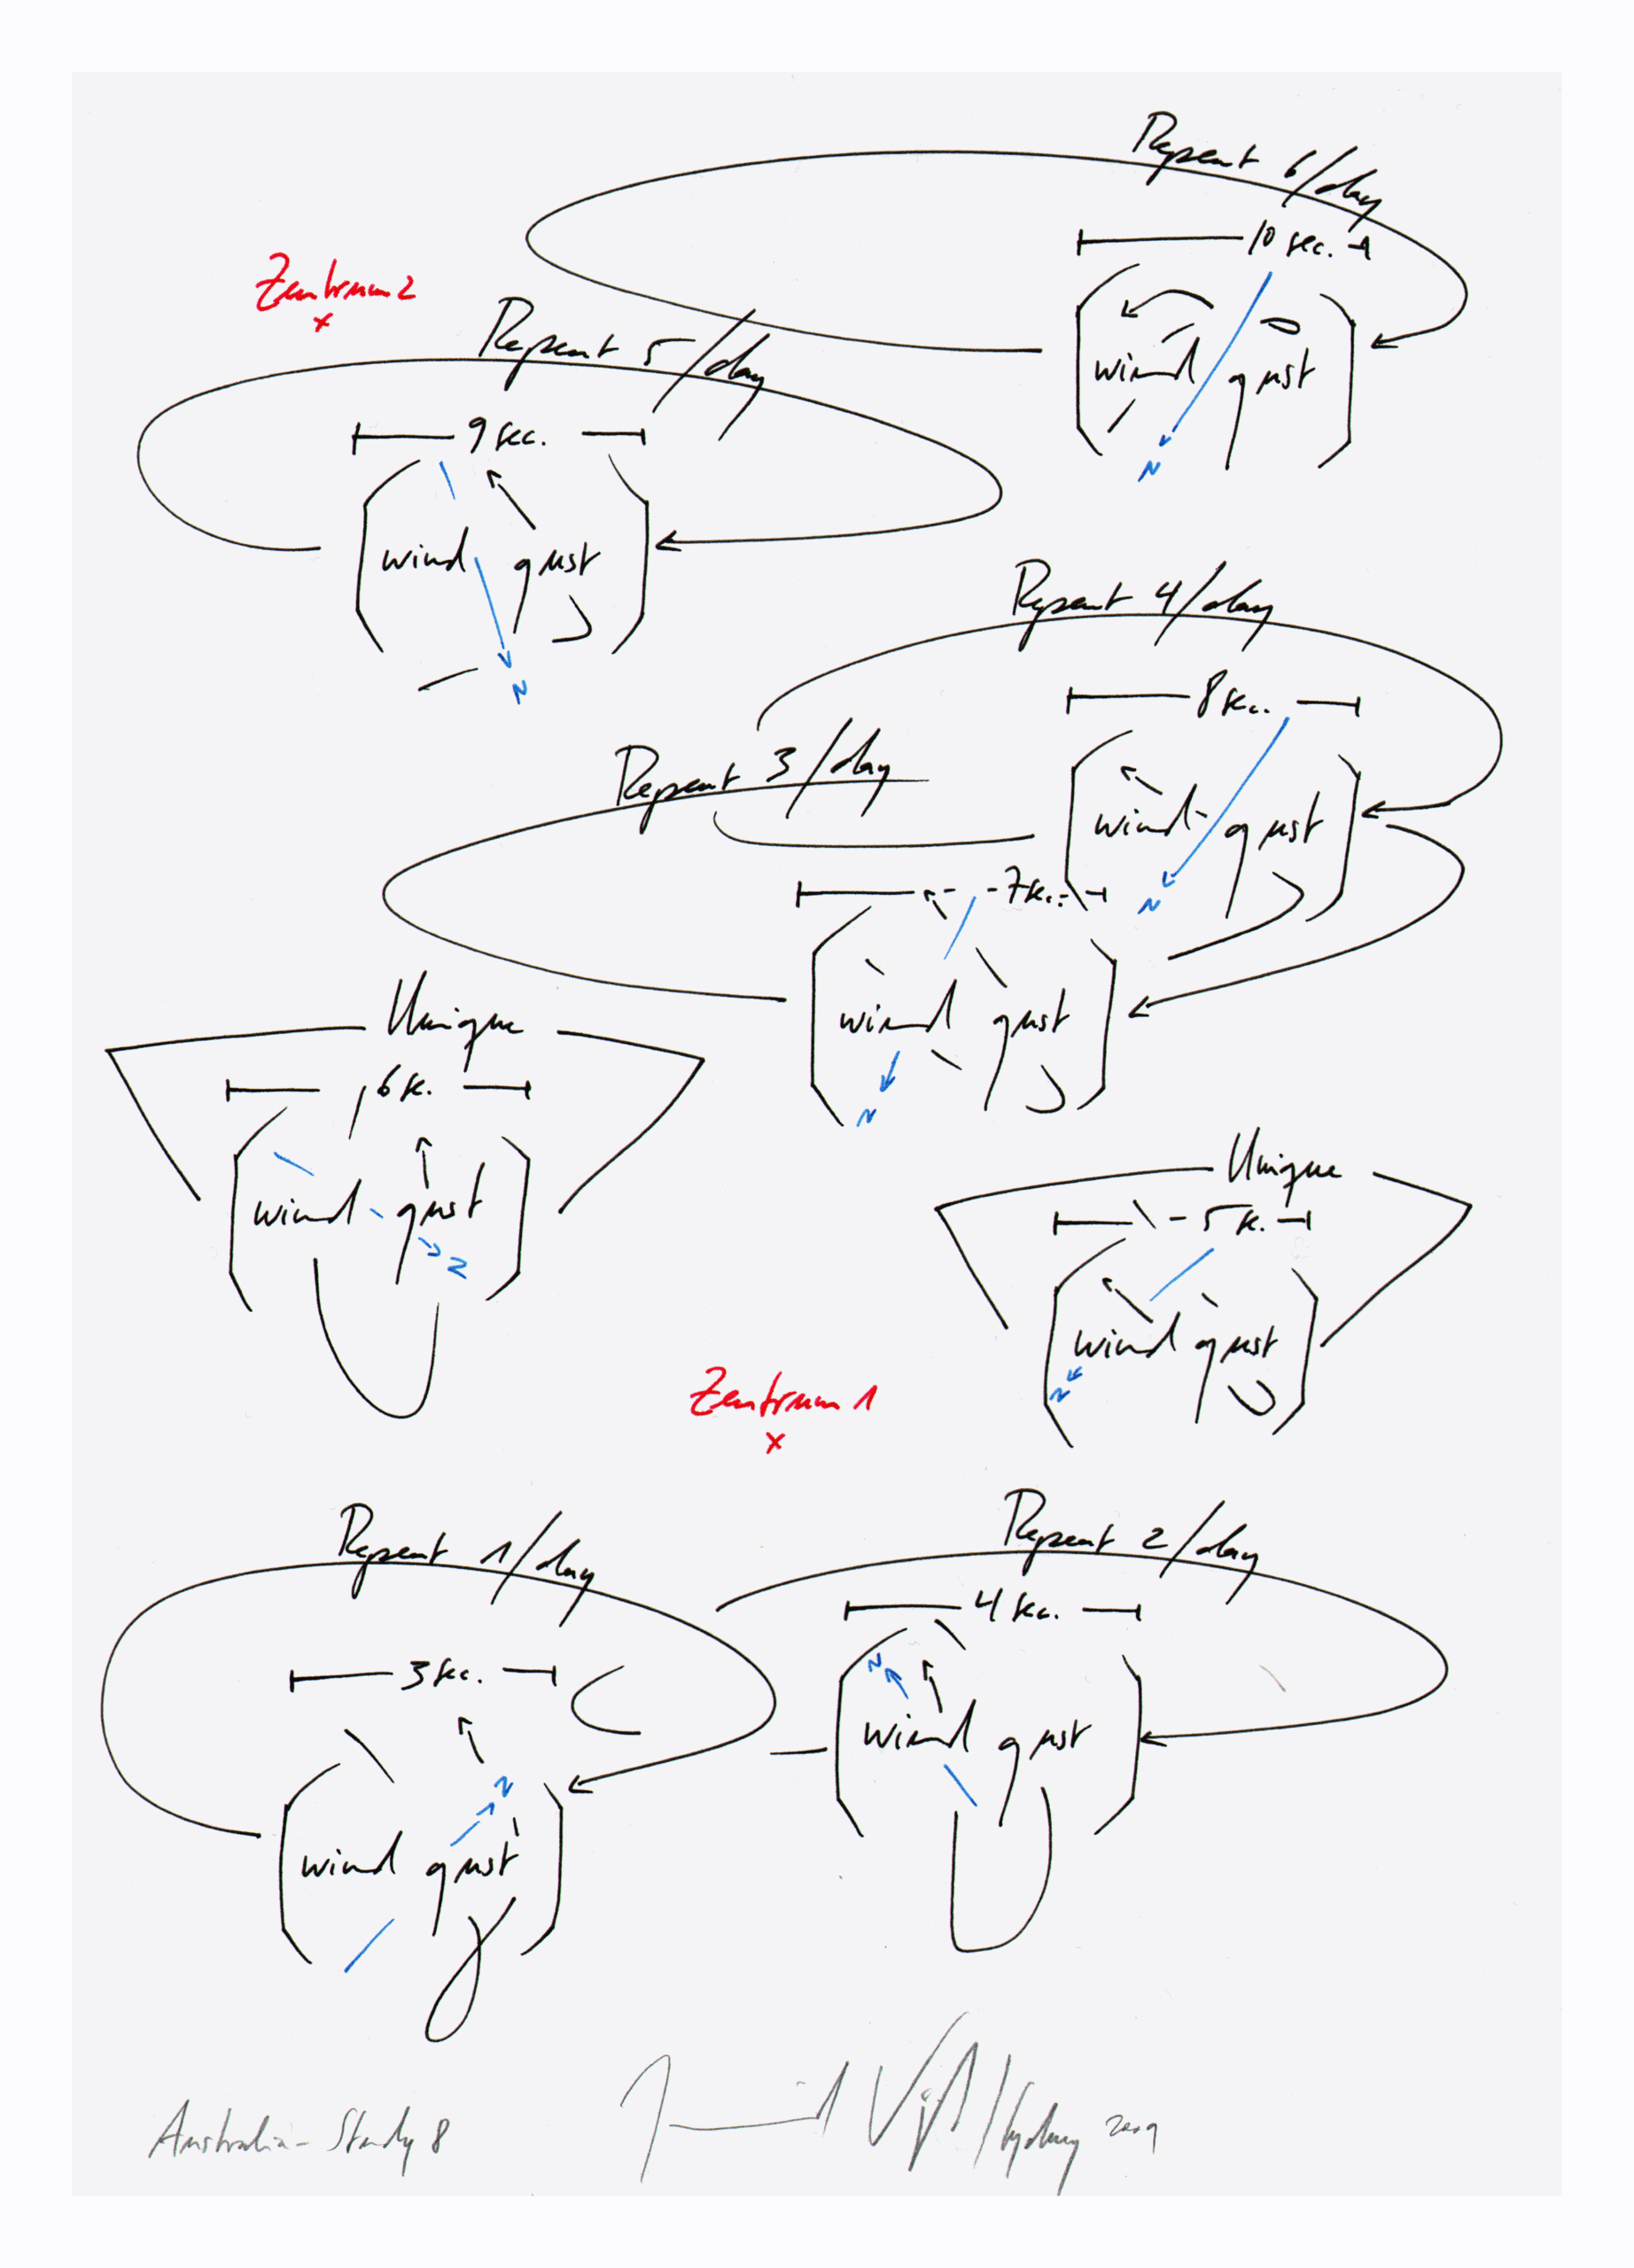 Repeat 6/day
10 sec.
wind gust
N
Zentrum 2
x
Repeat 5/day
9 sec.
wind gust
N
Repeat 4/day
8 sec.
wind gust
N
Repeat 3/day
7 sec.
wind gust
N
Unique
6 sec.
wind gust
N
Unique
5 sec.
wind gust
N
Zentrum 1
x
Repeat 1/day
3 sec.
wind gust
N
Repeat 2/day
4 sec.
wind gust
N
Australia - Study 8
Sydney 2009